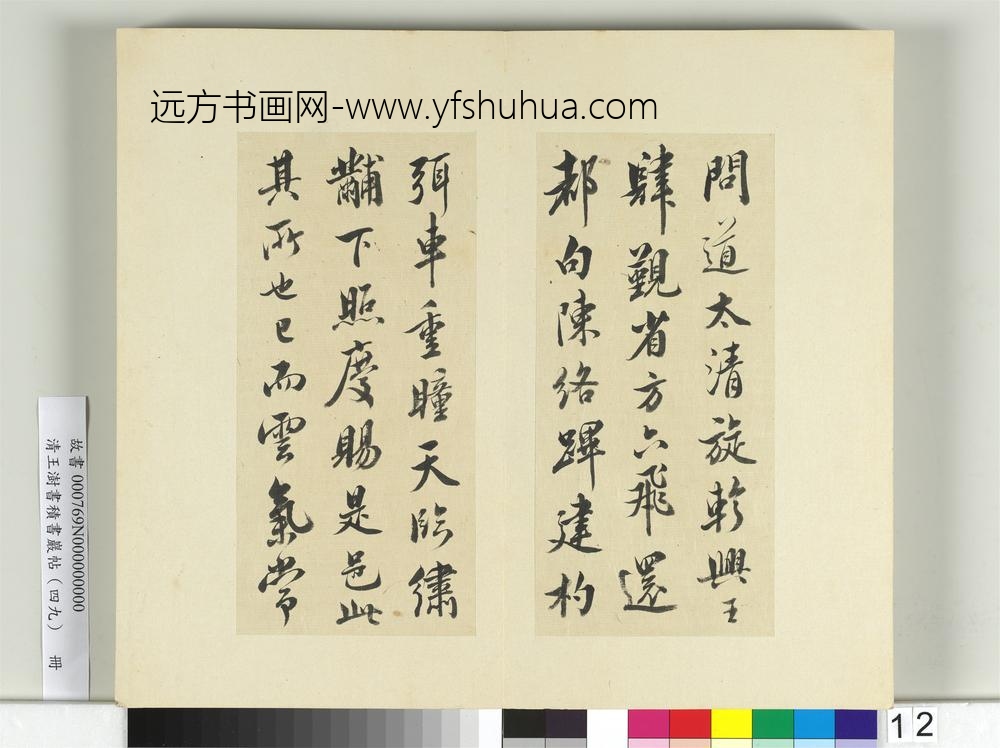 远方书画网-www.yfshuhua.com
問道太清旋軫興王
肆覲省方六飛還
都句陳絡蹕建杓
弭車重瞳天臨繡
黼下照度賜是邑此
其所也已而雲氣常
故書000769N000000000
清王澍書積書巖帖（四九） 冊
12